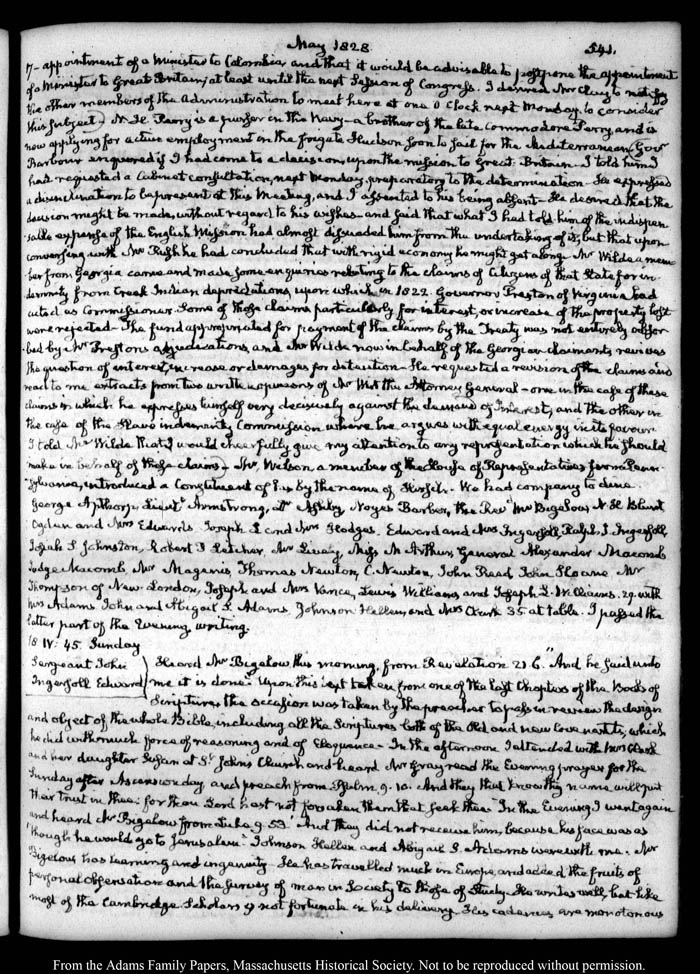 May 1828.
541.
17— appointment of a Minister to Colombia and that it would be advisable to postpone the appointment
of a Minister to Great Britain, at least until the next Session of Congress. I desired Mr Clay to notify
the other members of the Administration to meet here at one O'Clock next Monday, to consider
this subject. N. H. Perry is a purser in the Navy— a brother of the late Commodore Perry, and is
now applying for active employment in the frigate Hudson, soon to sail for the Mediterranean. Govr
Barbour enquired if I had come to a decision, upon the mission to Great Britain. I told him I
had requested a Cabinet consultation, next Monday, preparatory to the determination— He expressed
a disinclination to be present at this Meeting, and I assented to his being absent— He desired that the
decision might be made, without regard to his wishes— and said that what I had told him of the indispen-
sable expense of the English Mission had almost dissuaded him from the undertaking of it, but that upon
conversing with Mr Rush he had concluded that with rigid economy he might get along. Mr Wilde a mem-
ber from Georgia came and made some enquiries relating to the claims of Citizens of that State for in-
demnity from Creek Indian depredations, upon which in 1822. Governor Preston of Virginia had
acted as Commissioner. Some of those claims particularly for interest, or increase of the property lost
were rejected— The fund appropriated for payment of the claims by the Treaty was not entirely absor-
bed by Mr Preston's adjudications, and Mr Wilde now in behalf of the Georgian claimants, revives
the question of interest, increase or damages for detention— He requested a revision of the claims and
read to me extracts from two written opinions of Mr Wirt the Attorney General— one in the case of these
claims in which he expresses himself very decisively against the demand of Interest, and the other in
the case of the Slave indemnity Commission where he argues with equal energy in its favour
I told Mr Wilde that I would cheerfully give my attention to any representation which he should
make in behalf of those claims. Mr Wilson, a member of the House of Representatives from Penn-
sylvania, introduced a Constituent of his by the name of . We had company to dine.
George Apthorp, Lieutt Armstrong, Dr Ashby, Noyes Barber, the Revd Mr Bigelow, N. H. Blunt
Ogden and Mrs Edwards. Joseph L and Mrs Hodges. Edward and Mrs Ingersoll, Ralph I. Ingersoll,
Josiah S Johnston, Robert P Letcher, Mr Livesay, Miss McArthur, General Alexander Macomb
Judge Macomb, Mr Magenis, Thomas Newton, C. Newton, John Reed, John Sloane, Mr
Thompson of New London, Joseph and Mrs Vance, Lewis Williams and Joseph L. Williams. 29. with
Mrs Adams. John and Abigail S. Adams, Johnson Hellen, and Mrs Clark 35 at table. I passed the
latter part of the Evening, writing.
18. IV: 45. Sunday
Sergeant John
Ingersoll Edward
Heard Mr Bigelow this morning, from Revelation 21. 6. "And he said unto
me it is done." Upon this text taken from one of the last Chapters of the Books of
Scripture, the occasion was taken by the preacher to pass in review the design
and object of the whole Bible, including all the Scriptures both of the Old and new covenants, which
he did with much force of reasoning and of Eloquence— In the afternoon I attended with Mrs Clark
and her daughter Susan at St Johns Church and heard Mr Gray read the Evening prayer for the
Sunday after Ascension day, and preach from Psalm 9. 10. And they that know thy name will put
their trust in thee: for thou Lord hast not forsaken them that seek thee. In the Evening I went again
and heard Mr Bigelow from Luke 9. 53. And they did not receive him, because his face was as
though he would go to Jerusalem. Johnson Hellen and Abigail S. Adams were with me. Mr
Bigelow has learning and ingenuity. He has travelled much in Europe, and added the fruits of
personal observation and the survey of man in Society to those of Study. He writes well, but like
most of the Cambridge Scholars is not fortunate in his delivery. His cadences are monotonous
From the Adams Family Papers, Massachusetts Historical Society. Not to be reproduced without permission.